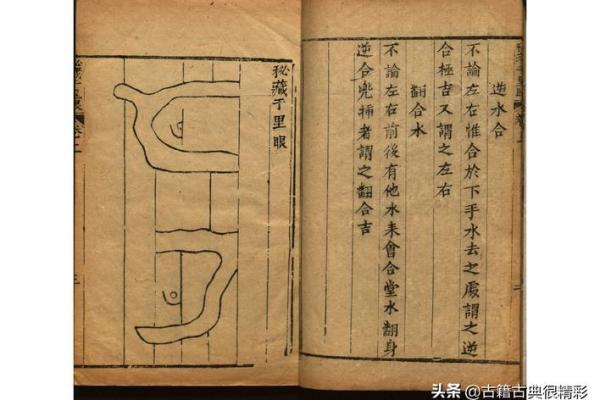 逆水合
不論左右惟合於下手水去之處謂之逆
合極吉又謂之左右
翻合水
不論左右前後有他水來會合堂水翻身
逆合兜插者謂之翻合吉
秘藏千里眼
頭条 @古籍古典很精彩